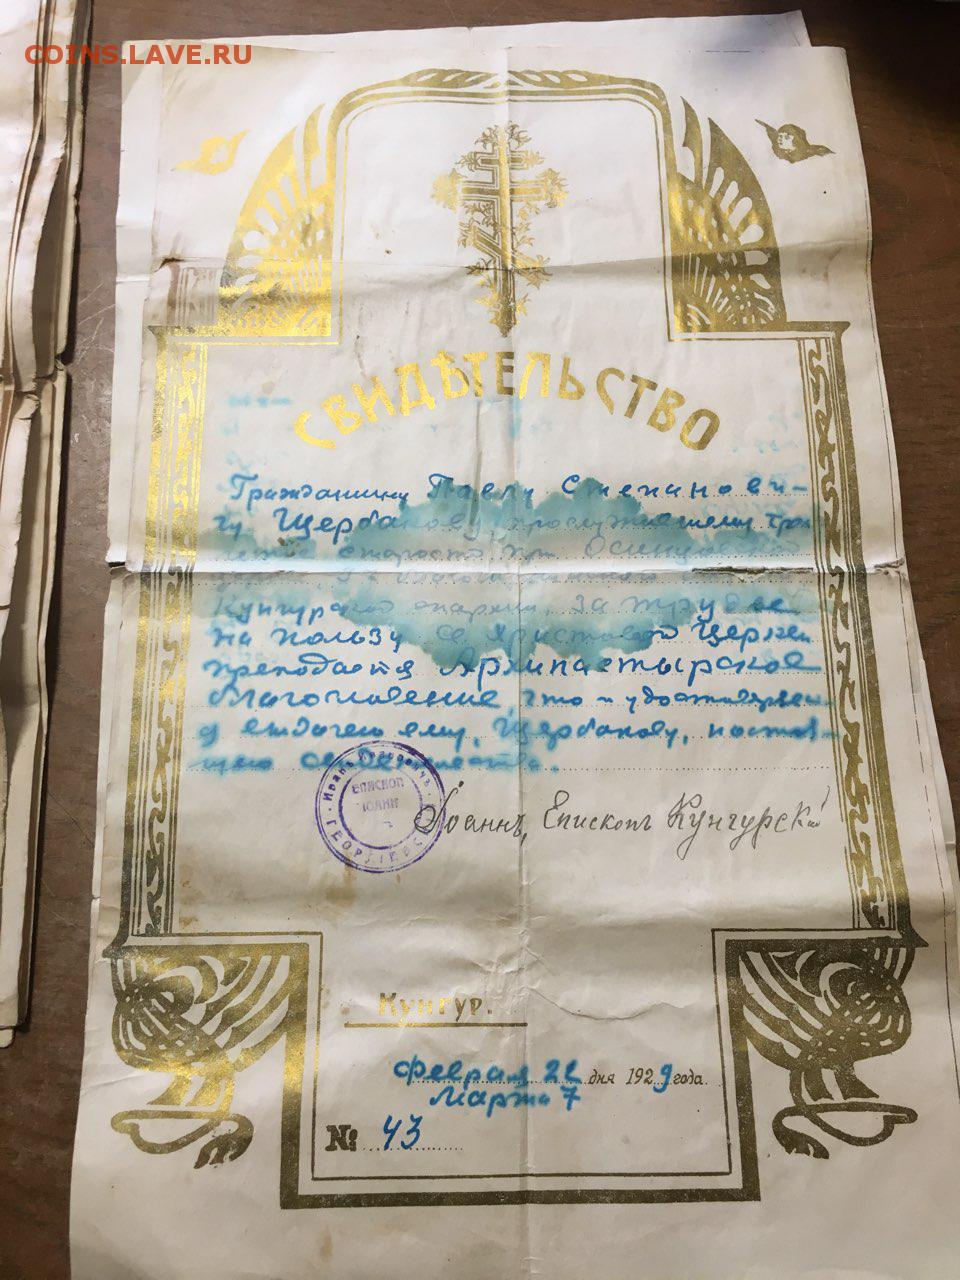 COINS.LAVE.RU
СВИДѢТЕЛЬСТВО
Гражданину Павлу Степанови-
чу Щербакову, прослужившему
старостой при
Кунгурской епархии, за труды ее
на пользу св. Христовой Церкви
преподается Архипастырское
благословение, что и удостоверяет-
ся выдачею ему, Щербакову, настоя-
щего свидетельства.
ЕПИСКОП
ИОАНН
Іоаннъ, Епископъ Кунгурскій
Кунгур.
Февраля 22 дня 1929 года.
Марта 7
№ 43